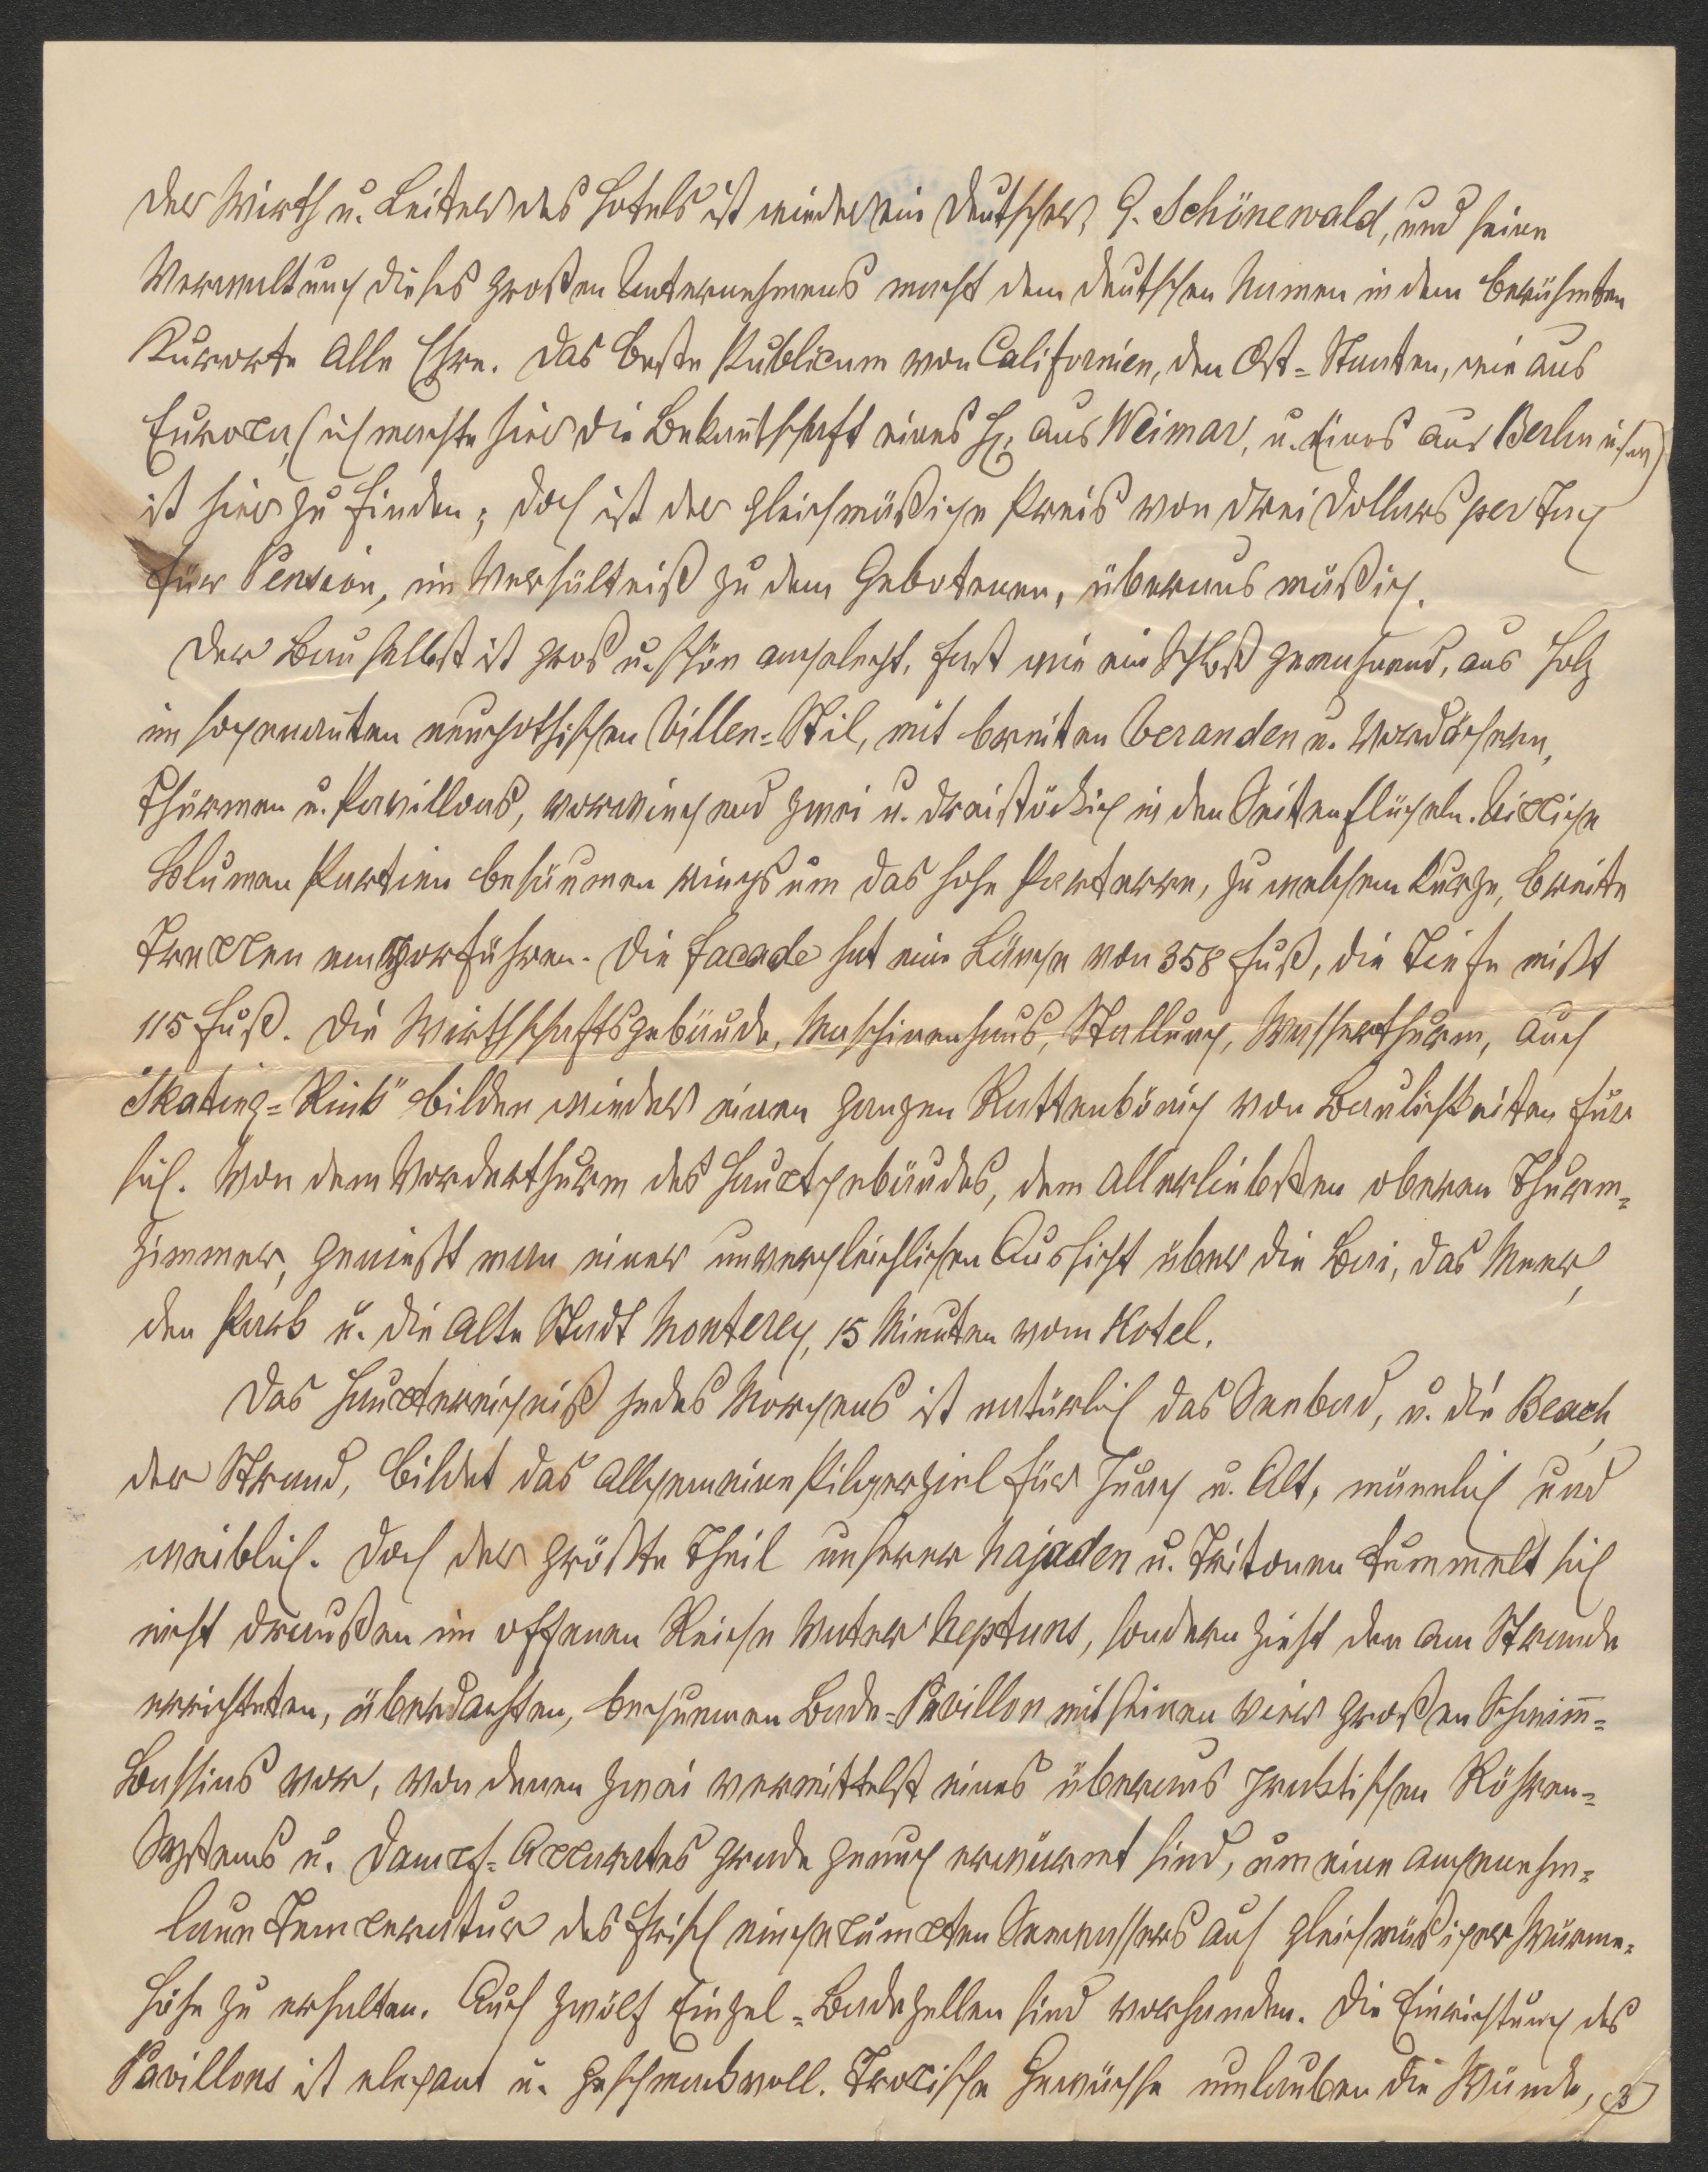 Der Wirth u. Leiter des Hotels ist wieder ein Deutscher, G. Schönewald, und seine
Verwaltung dieses großen Unternehmens macht dem deutschen Namen in dem berühmten
Kurorte alle Ehre. Das beste Publicum von Californien, den Ost-Staaten, wie aus
Europa, (ich machte hier die Bekan̅tschaft eines H. aus Weimar, u. Eines aus Berlin u.s.w)
ist hier zu finden; doch ist der gleichmäßige Preis von drei Dollars per Tag
für Pension, im Verhältniß zu dem Gebotenen, überaus mäßig.
Der Bau selbst ist groß u. schön angelegt, fast wie ein Schloß gemahnend, aus Holz
im sogenan̅ten neugothischen Villen-Stil, mit breiten Veranden u. Vordächern,
Thürmen u. Pavillons, vorwiegend zwei u. dreistöckig in den Seitenflügeln. Üppige
Blumen Partien besäumen rings um das hohe Parterre, zu welchem kurze, breite
Treppen emporführen. Die Facade hat eine Länge von 358 Fuß, die Tiefe mißt
115 Fuß. Die Wirthschaftsgebäude, Maschinenhaus, Stallung, Wasserthurm, auch
"Skating-Rink" bilden wieder einen ganzen Rattenkönig von Baulichkeiten für
sich. Von dem Vorderthurm des Hauptgebäudes, dem allerliebsten oberen Thurm-
zimmer, genießt man einer unvergleichlichen Aussicht über die Bai, das Meer,
den Park u. die alte Stadt Monterey, 15 Minuten vom Hotel.
Das Hauptereigniß jedes Morgens ist natürlich das Seebad, u. die Beach,
der Strand, bildet das allgemeine Pilgerziel für Jung u. Alt, männlich und
weiblich. Doch der größte Theil unserer Najaden u. Tritonen tummelt sich
nicht draußen im offenen Reiche Vater Neptuns, sondern zieht den am Strande
errichteten, überdachten, bequemen Bade-Pavillon mit seinen vier großen Schwim̅-
Bassins vor, von denen zwei vermittelst eines überaus praktischen Röhren-
Systems u. Dampf-Apparates grade genug erwärmt sind, um eine angenehm-
laue Temperatur des frisch eingepumpten Seewassers auf gleichmäßiger Wärme-
höhe zu erhalten. Auch zwölf Einzel-Badezellen sind vorhanden. Die Einrichtung des
Pavillons ist elegant u. geschmackvoll. Tropische Gewächse umlauben die Wände,